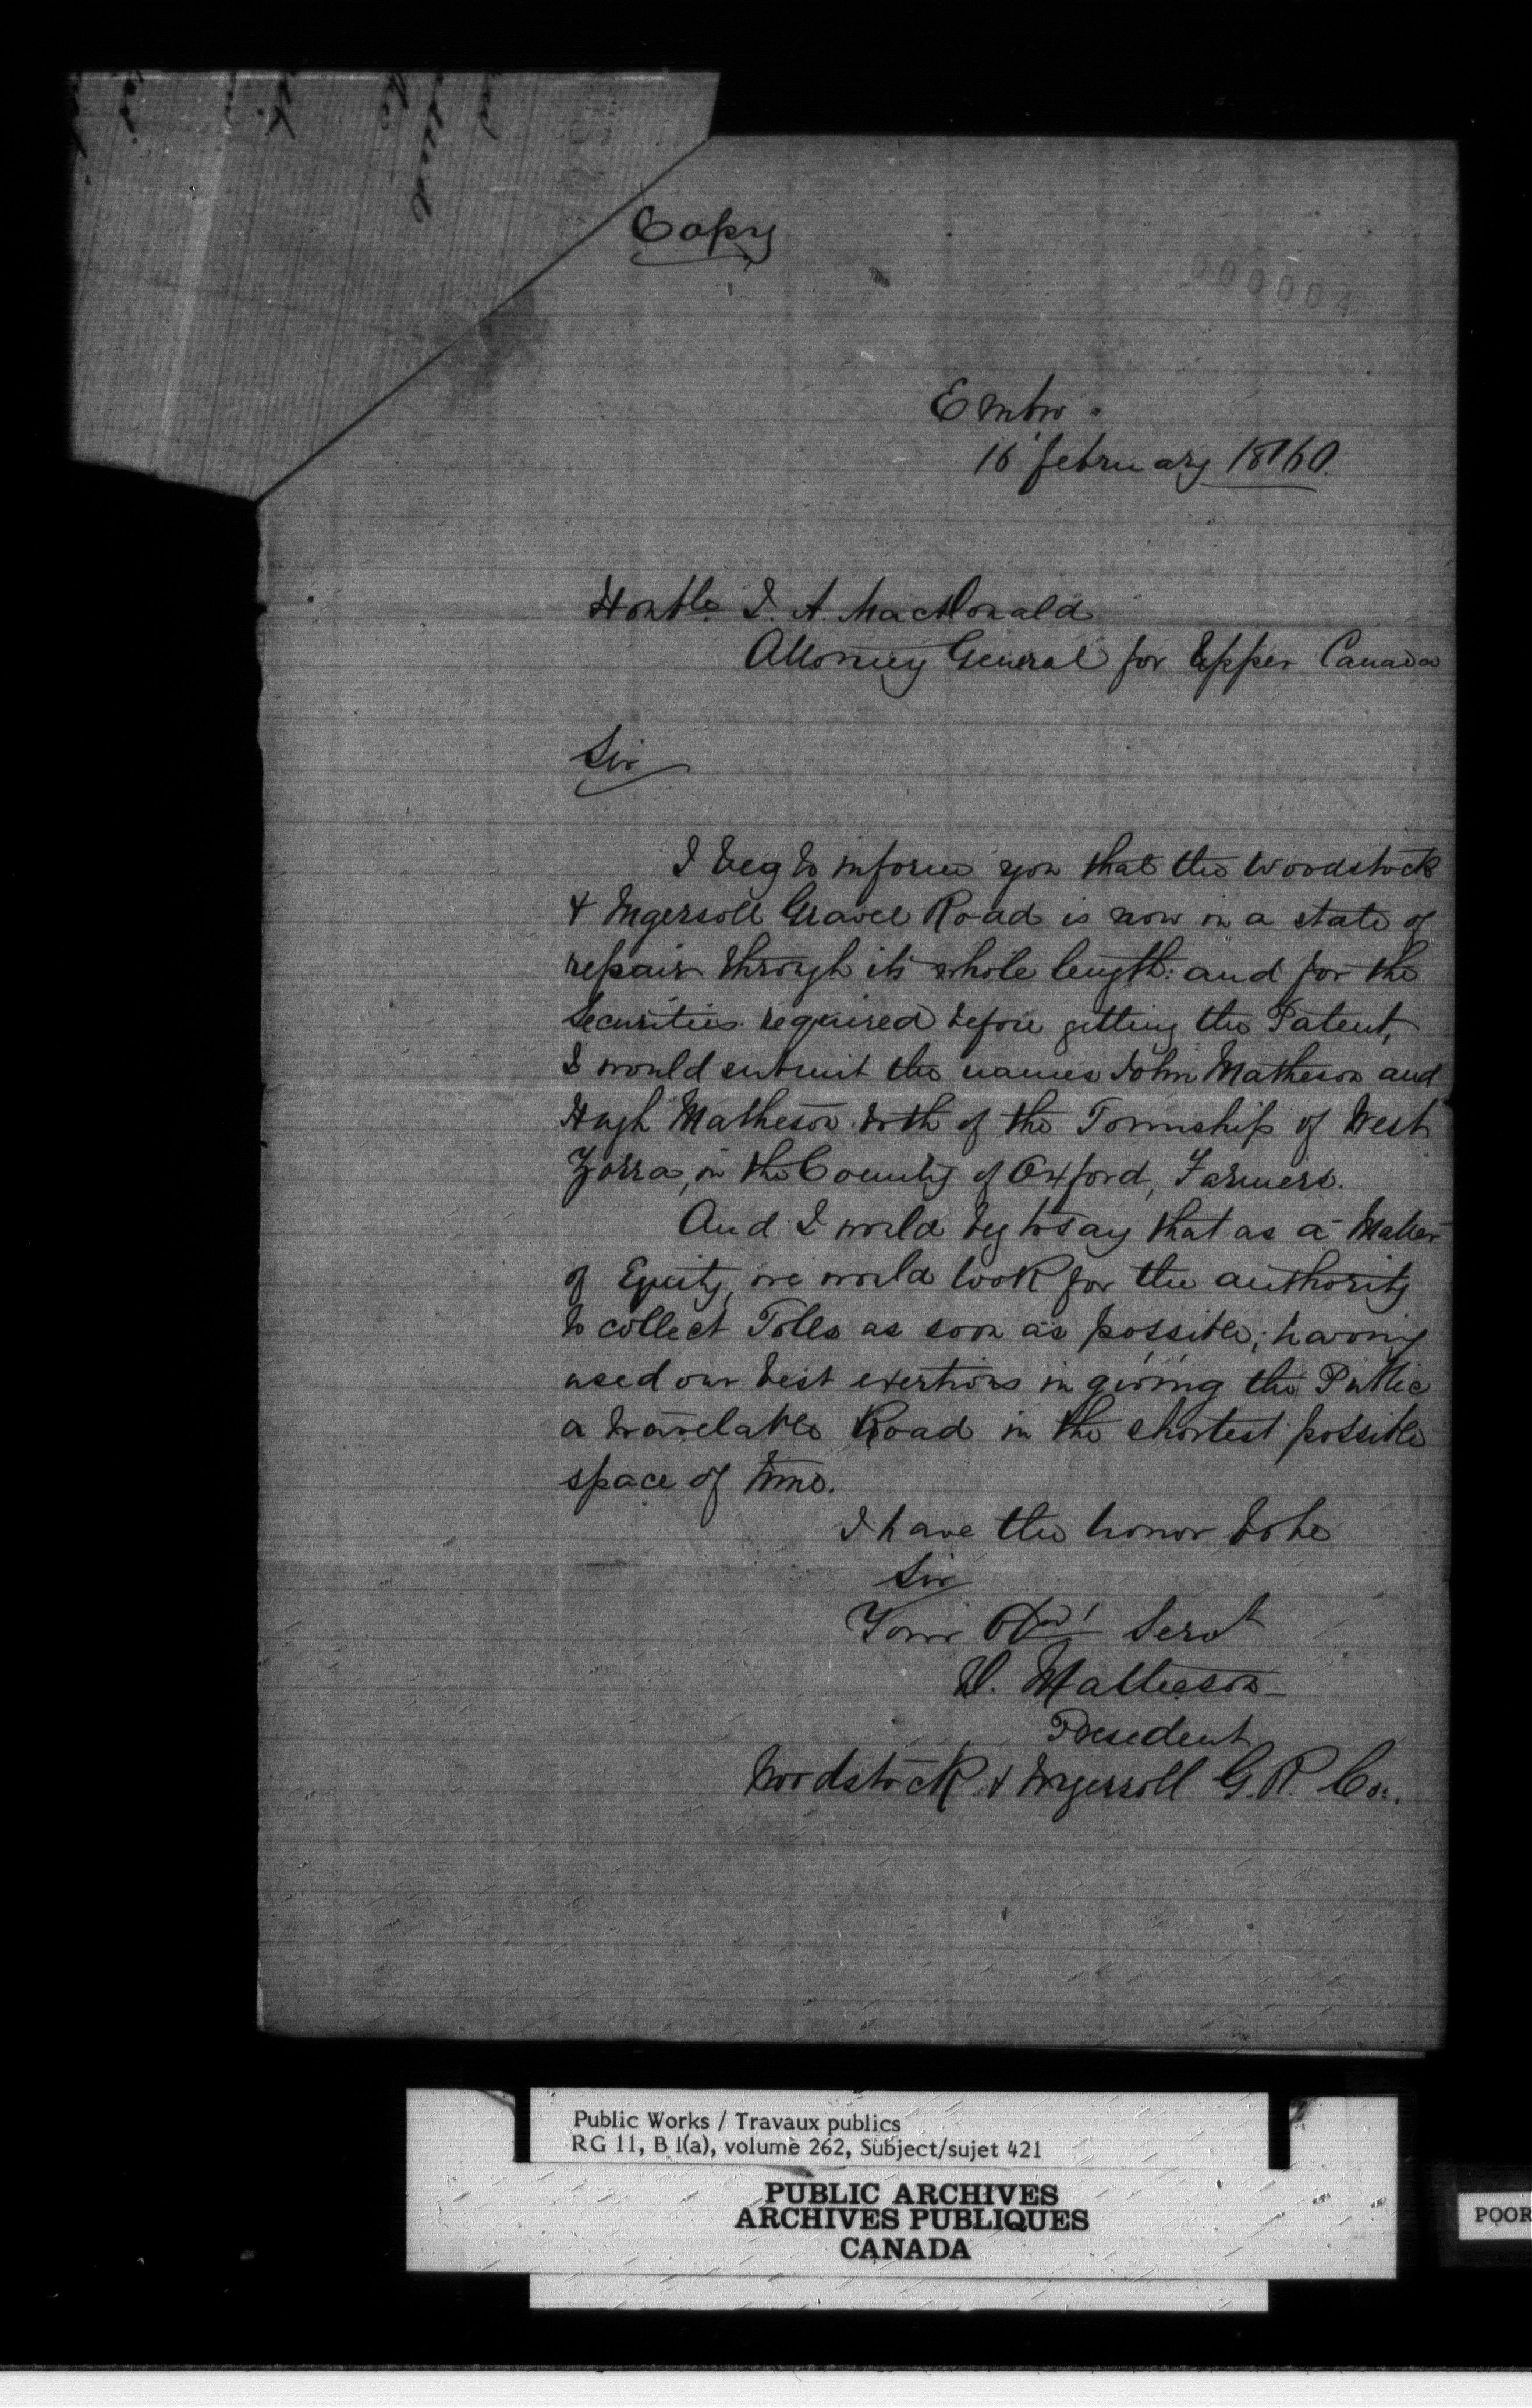 Copy
000004
Embro.
16 february 1860.
Honble J. A. MacDonald
Attorney General for Upper Canada
Sir
I beg to inform you that the Woodstock
& Ingersoll Gravel Road is now in a state of
repair through its whole length: and for the
Securities required before getting the Patent,
I would submit the names John Matheson and
Hugh Matheson both of the Township of West
Zorra, in the County of Oxford, Farmers.
And I would beg to say that as a Matter
of Equity, we would look for the authority
to collect Tolls as soon as possible; having
used our best exertions in giving the Public
a travelable Road in the shortest possible
space of time.
I have the honor to be
Sir
Your Obdt Servt
D. Matheson
President
Woodstock & Ingersoll G. R. Co.
Public Works / Travaux publics
RG 11, B 1(a), volume 262, Subject/sujet 421
PUBLIC ARCHIVES
ARCHIVES PUBLIQUES
CANADA
POOR